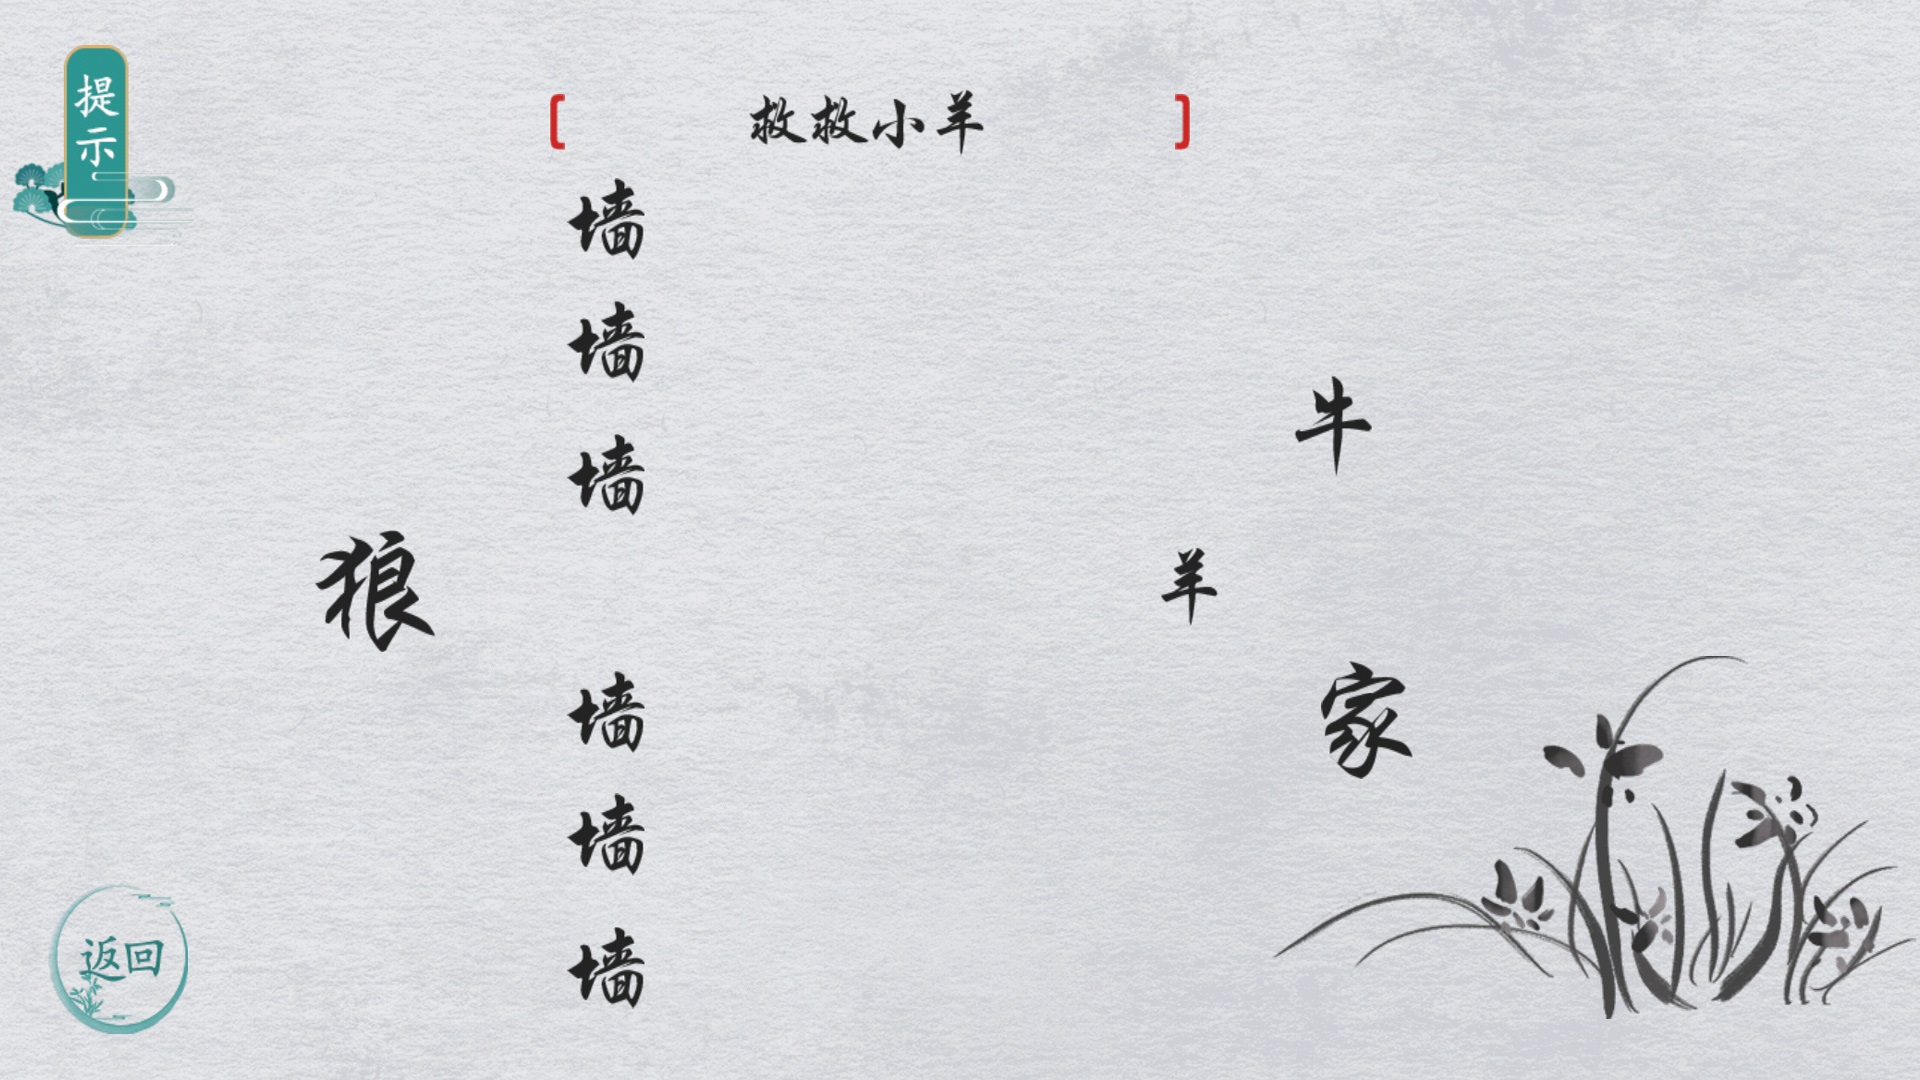 提示
救救小羊
墙
墙
牛
墙
狼
羊
墙
家
墙
返回
墙